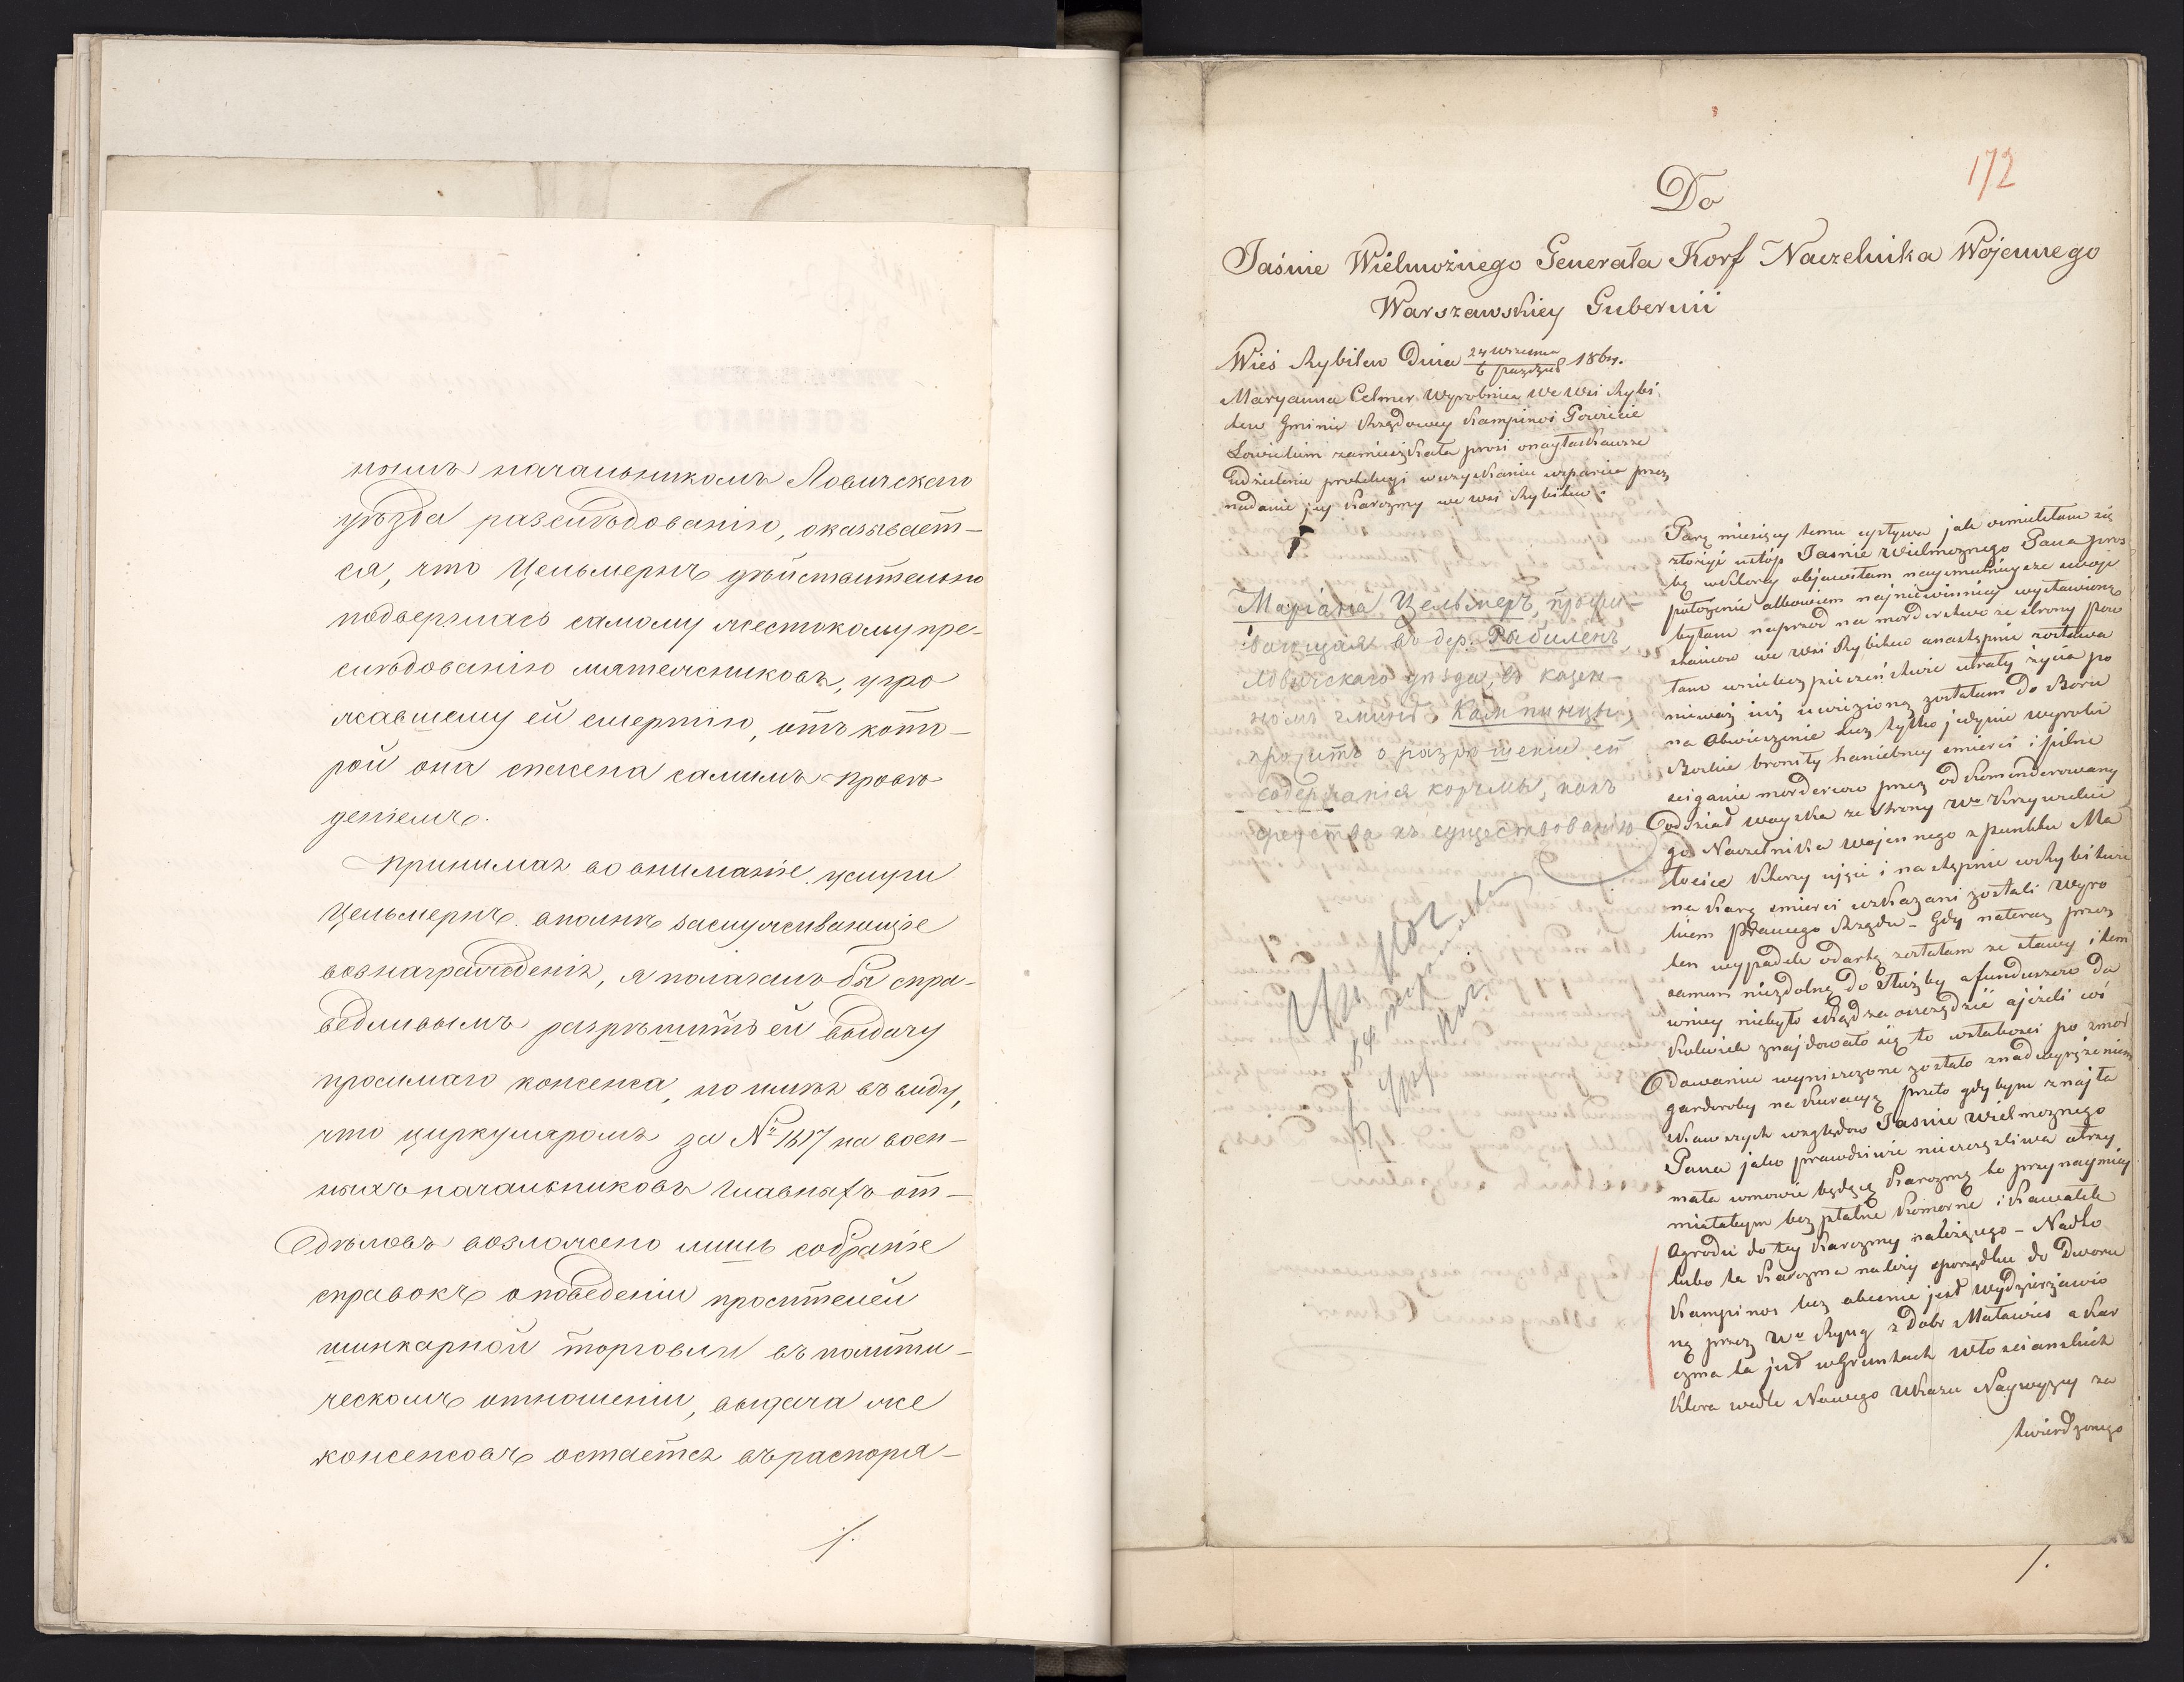 нымъ начальникомъ Ловичскаго
уѣзда разслѣдованію, оказывает-
ся, что Цельмернъ дѣйствительно
подверглась самому жестокому пре-
слѣдованію мятежниковъ, угро
жавшему ей смертію, отъ кото-
рой она спасена самимъ прови-
деніемъ.
Принимая во вниманіе услуги
Цельмернъ вполнѣ заслуживающіе
вознагражденія, я полагалъ бы спра-
ведливымъ разрѣшить ей выдачу
просимаго консенса, но имѣя въ виду,
что циркуляромъ за № 1617 на воен-
ныхъ начальниковъ главныхъ от-
дѣловъ возложено лишь собраніе
справокъ о поведеніи просителей
шинкарной торговли въ полити-
ческомъ отношеніи, выдача же
консенсовъ остается въ распоря-
/.
172
Do
Jaśnie Wielmożnego Generała Korf Naczelnika Wojennego
Warszawskiey Gubernii
Wieś Rybitew Dnia 24 Wrzesnia / 6 Pazdzier 1864.
Maryanna Celmer Wyrobnica we Wsi Rybi
tew Gminie Rządowey Kampinos Powiecie
Łowickim zamieszkała prosi o nayłaskawsze
Udzielenie protekcyi w uzyskaniu wsparcia przez
nadanie jey Karczmy we wsi Rybitew.
Маріана Цельмеръ, прожи-
вающая въ дер. Рыбилевъ
Ловичскаго уѣзда, въ казен-
номъ гминѣ Кампиносъ,
проситъ о разрѣшеніи ей
содержанія корчмы, какъ
средства къ существованію
Parę miesięcy temu upływa jak ośmieliłam się
złożyć u stóp Jaśnie Wielmożnego Pana proś
bę w ktorey objawiłam naysmutnieysze swoje
położenie albowiem najniewinniey wystawioną
byłam naprzod na morderstwo ze strony pow
stańcow we wsi Rybitew a następnie zostawa
łam w niebezpieczeństwie utraty życia po
nieważ już uwięzioną zostałam do Boru
na Obwieszenie lecz tylko jedynie wyroki
Boskie broniły haniebney śmierci i pilne
sciganie mordercow przez od Komenderowany
oddział woyska ze strony Wo Krzywickie
go Naczelnika Wojennego z punktu Ma
łocice Ktorzy ujęci i następnie w Rybitwie
na karę smierci wskazani zostali Wyro
kiem Prawego Rządu - Gdy nateraz przez
ten wypadek odartą zostałam ze sławy i tem
samem niezdolną do Służby a funduszow da
wniey niebyło skąd zaoszczędzić a jeżeli coś
kolwiek znajdowało się to w słabości po zmor
dowaniu wyniszczone zostało z nadwyrężeniem
garderoby na kuracyę przeto gdybym z najła
skawszych względow Jaśnie Wielmożnego
Pana jako prawdziwie nieszczęśliwa otrzy
mała w mowie będącą Karczmę to przynaymniey
miałabym bez płatne Komorne i Kawałek
Ogrodu do tey Karczmy należącego - Nadto
lubo ta Karczma należy w porządku do Dworu
Kampinos lecz obecnie jest wydzierżawio
ną przez Wo Ryng z Dobr Matawies a Kar
czma ta jest w Gruntach Włościanskich
Ktora wedle Nowego Ukazu Naywyżey za
twierdzonego
/.